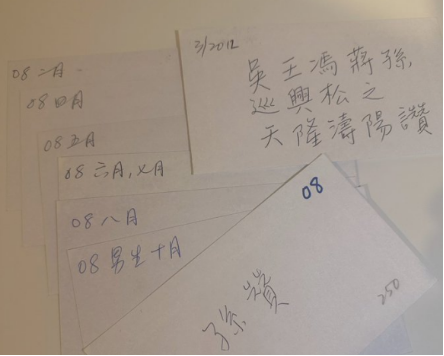 08 二月
08 四月
08 五月
08 六月,七月
08 八月
08 男生十月
3/2012
吳王馮蔣孫
巡興松之
天隆濤陽讚
08
孫讚
250